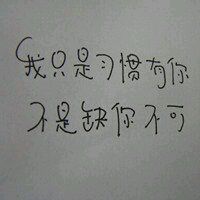 我只是习惯有你
不是缺你不可